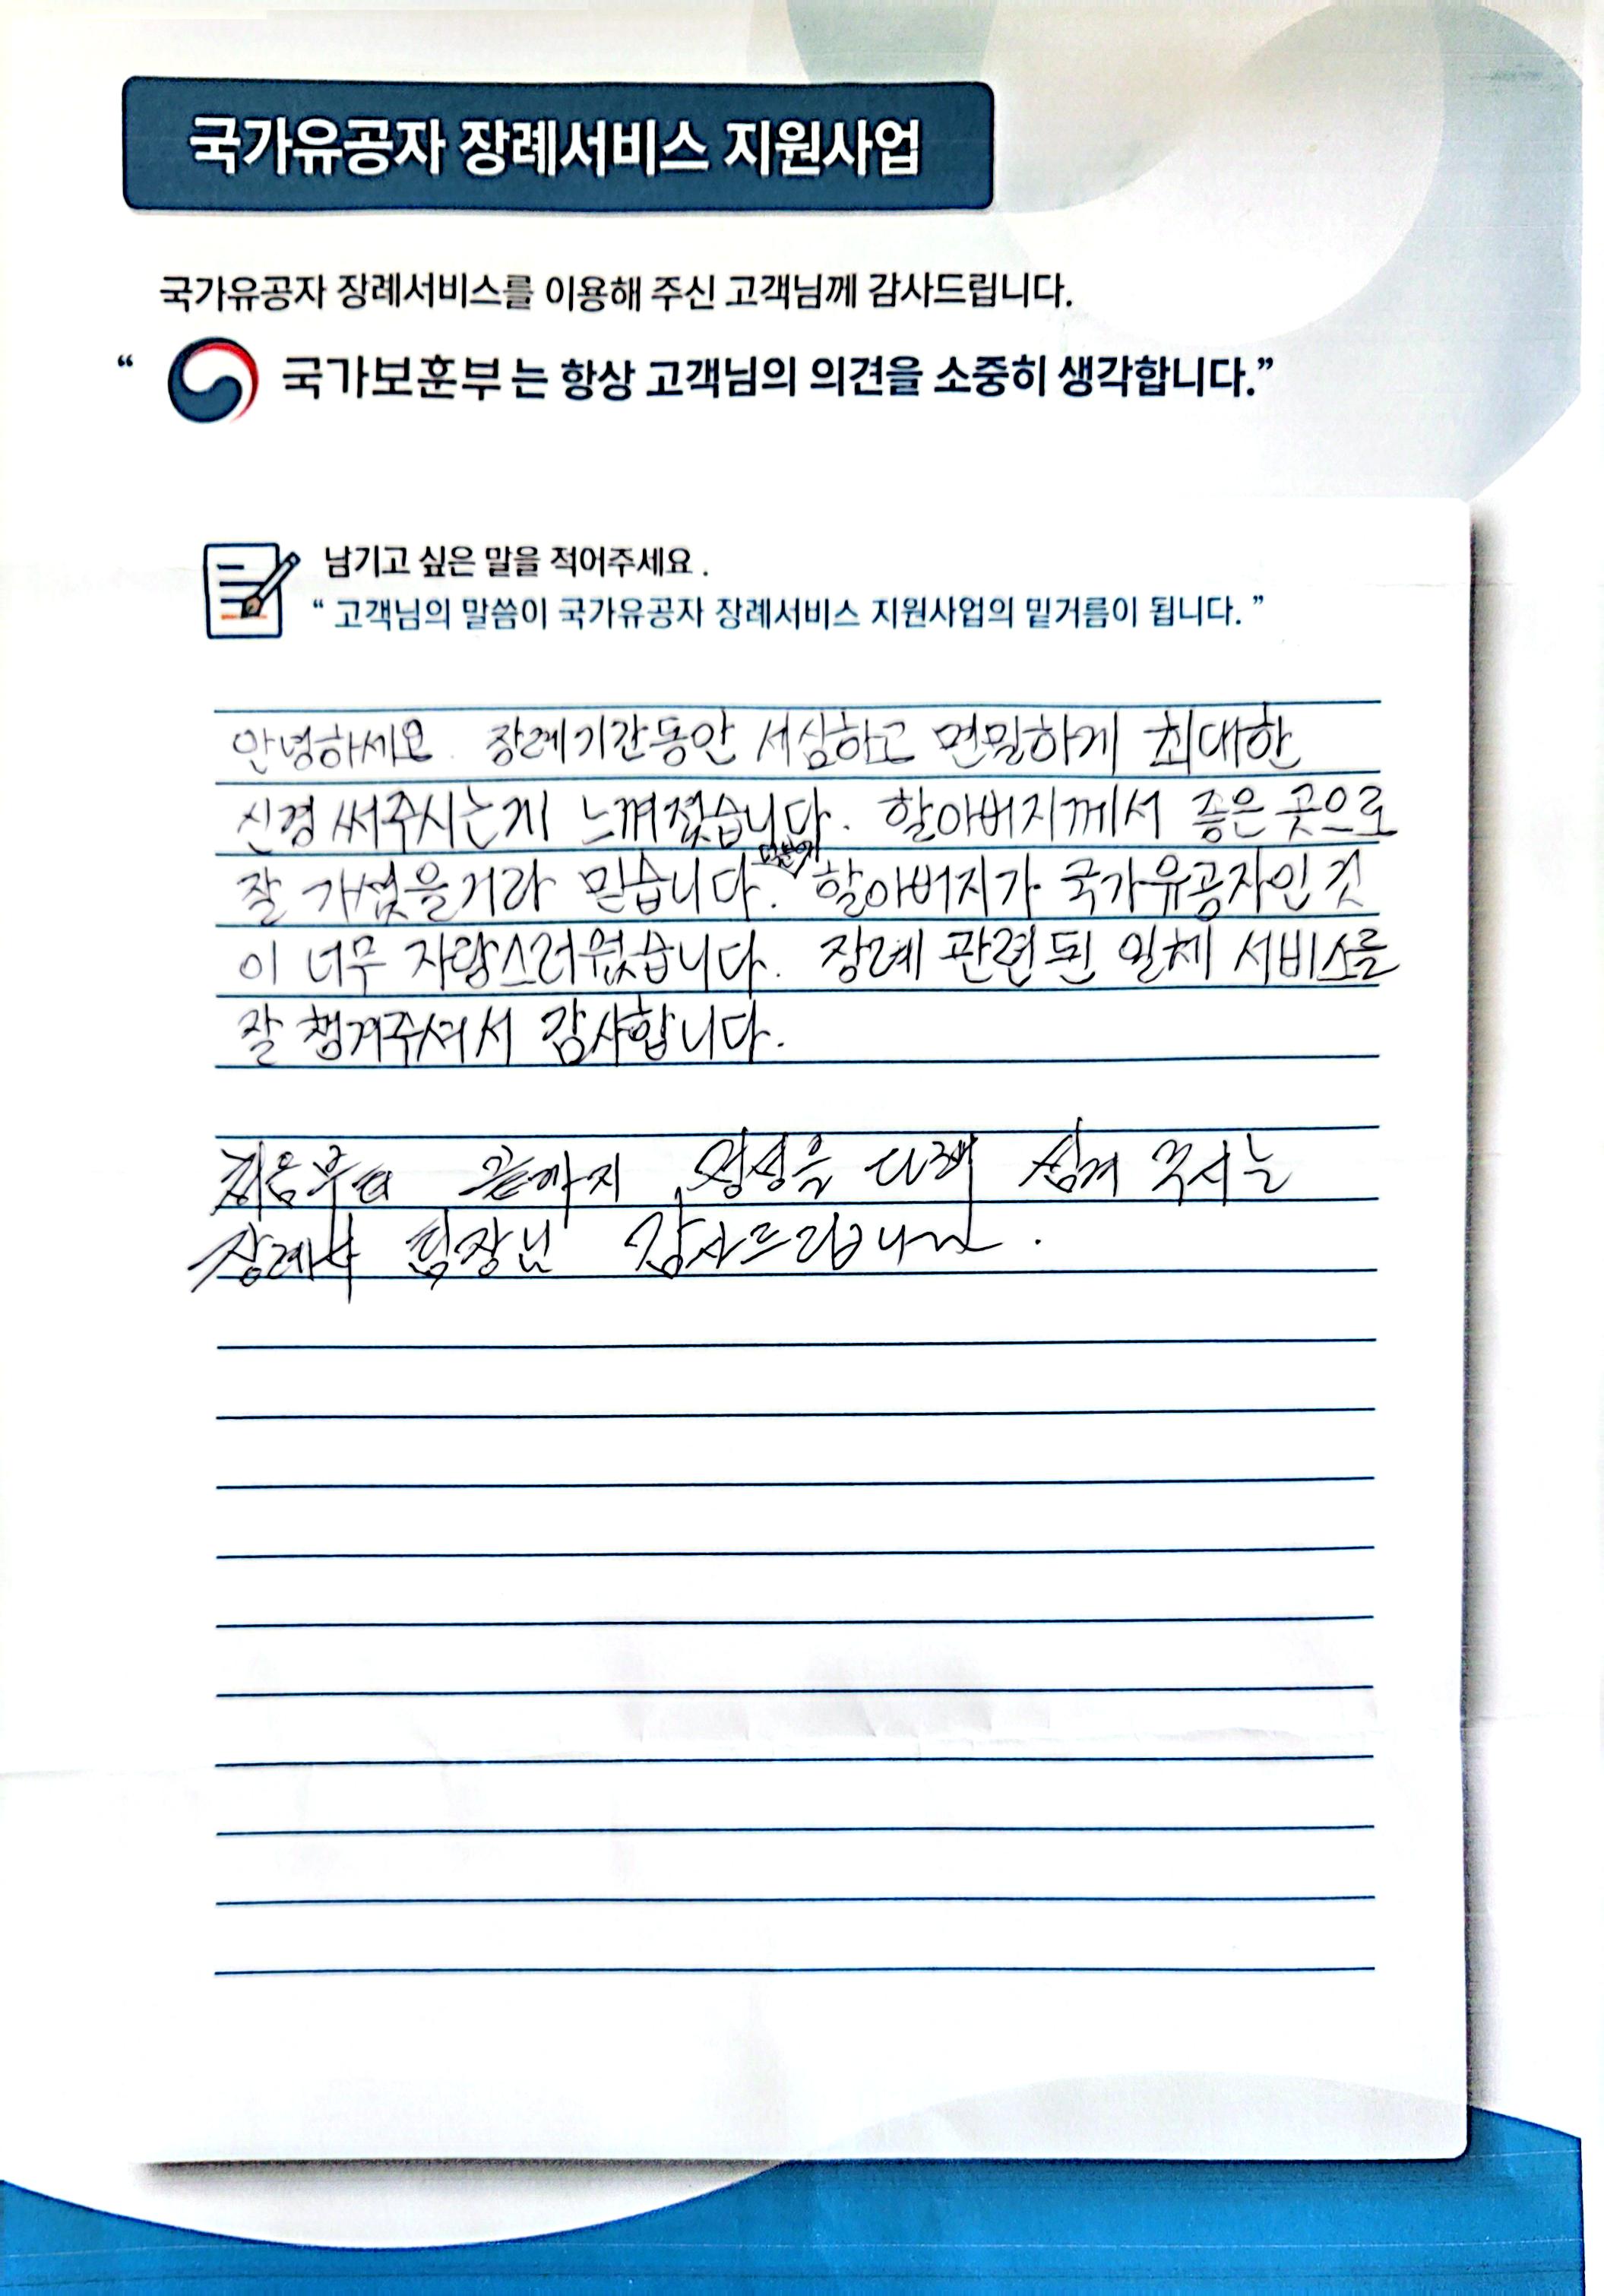 국가유공자 장례서비스 지원사업
국가유공자 장례서비스를 이용해 주신 고객님께 감사드립니다.
“ 국가보훈부 는 항상 고객님의 의견을 소중히 생각합니다.”
남기고 싶은 말을 적어주세요 .
“ 고객님의 말씀이 국가유공자 장례서비스 지원사업의 밑거름이 됩니다. ”
안녕하세요. 장례기간동안 세심하고 면밀하게 최대한
신경 써주시는게 느껴졌습니다. 할아버지께서 좋은 곳으로
더불어
잘 가셨을거라 믿습니다. 할아버지가 국가유공자인 것
이 너무 자랑스러웠습니다. 장례 관련된 일체 서비스를
잘 챙겨주셔서 감사합니다.
처음부터 끝까지 정성을 다해 섬겨 주시는
장례사 팀장님 감사드립니다.